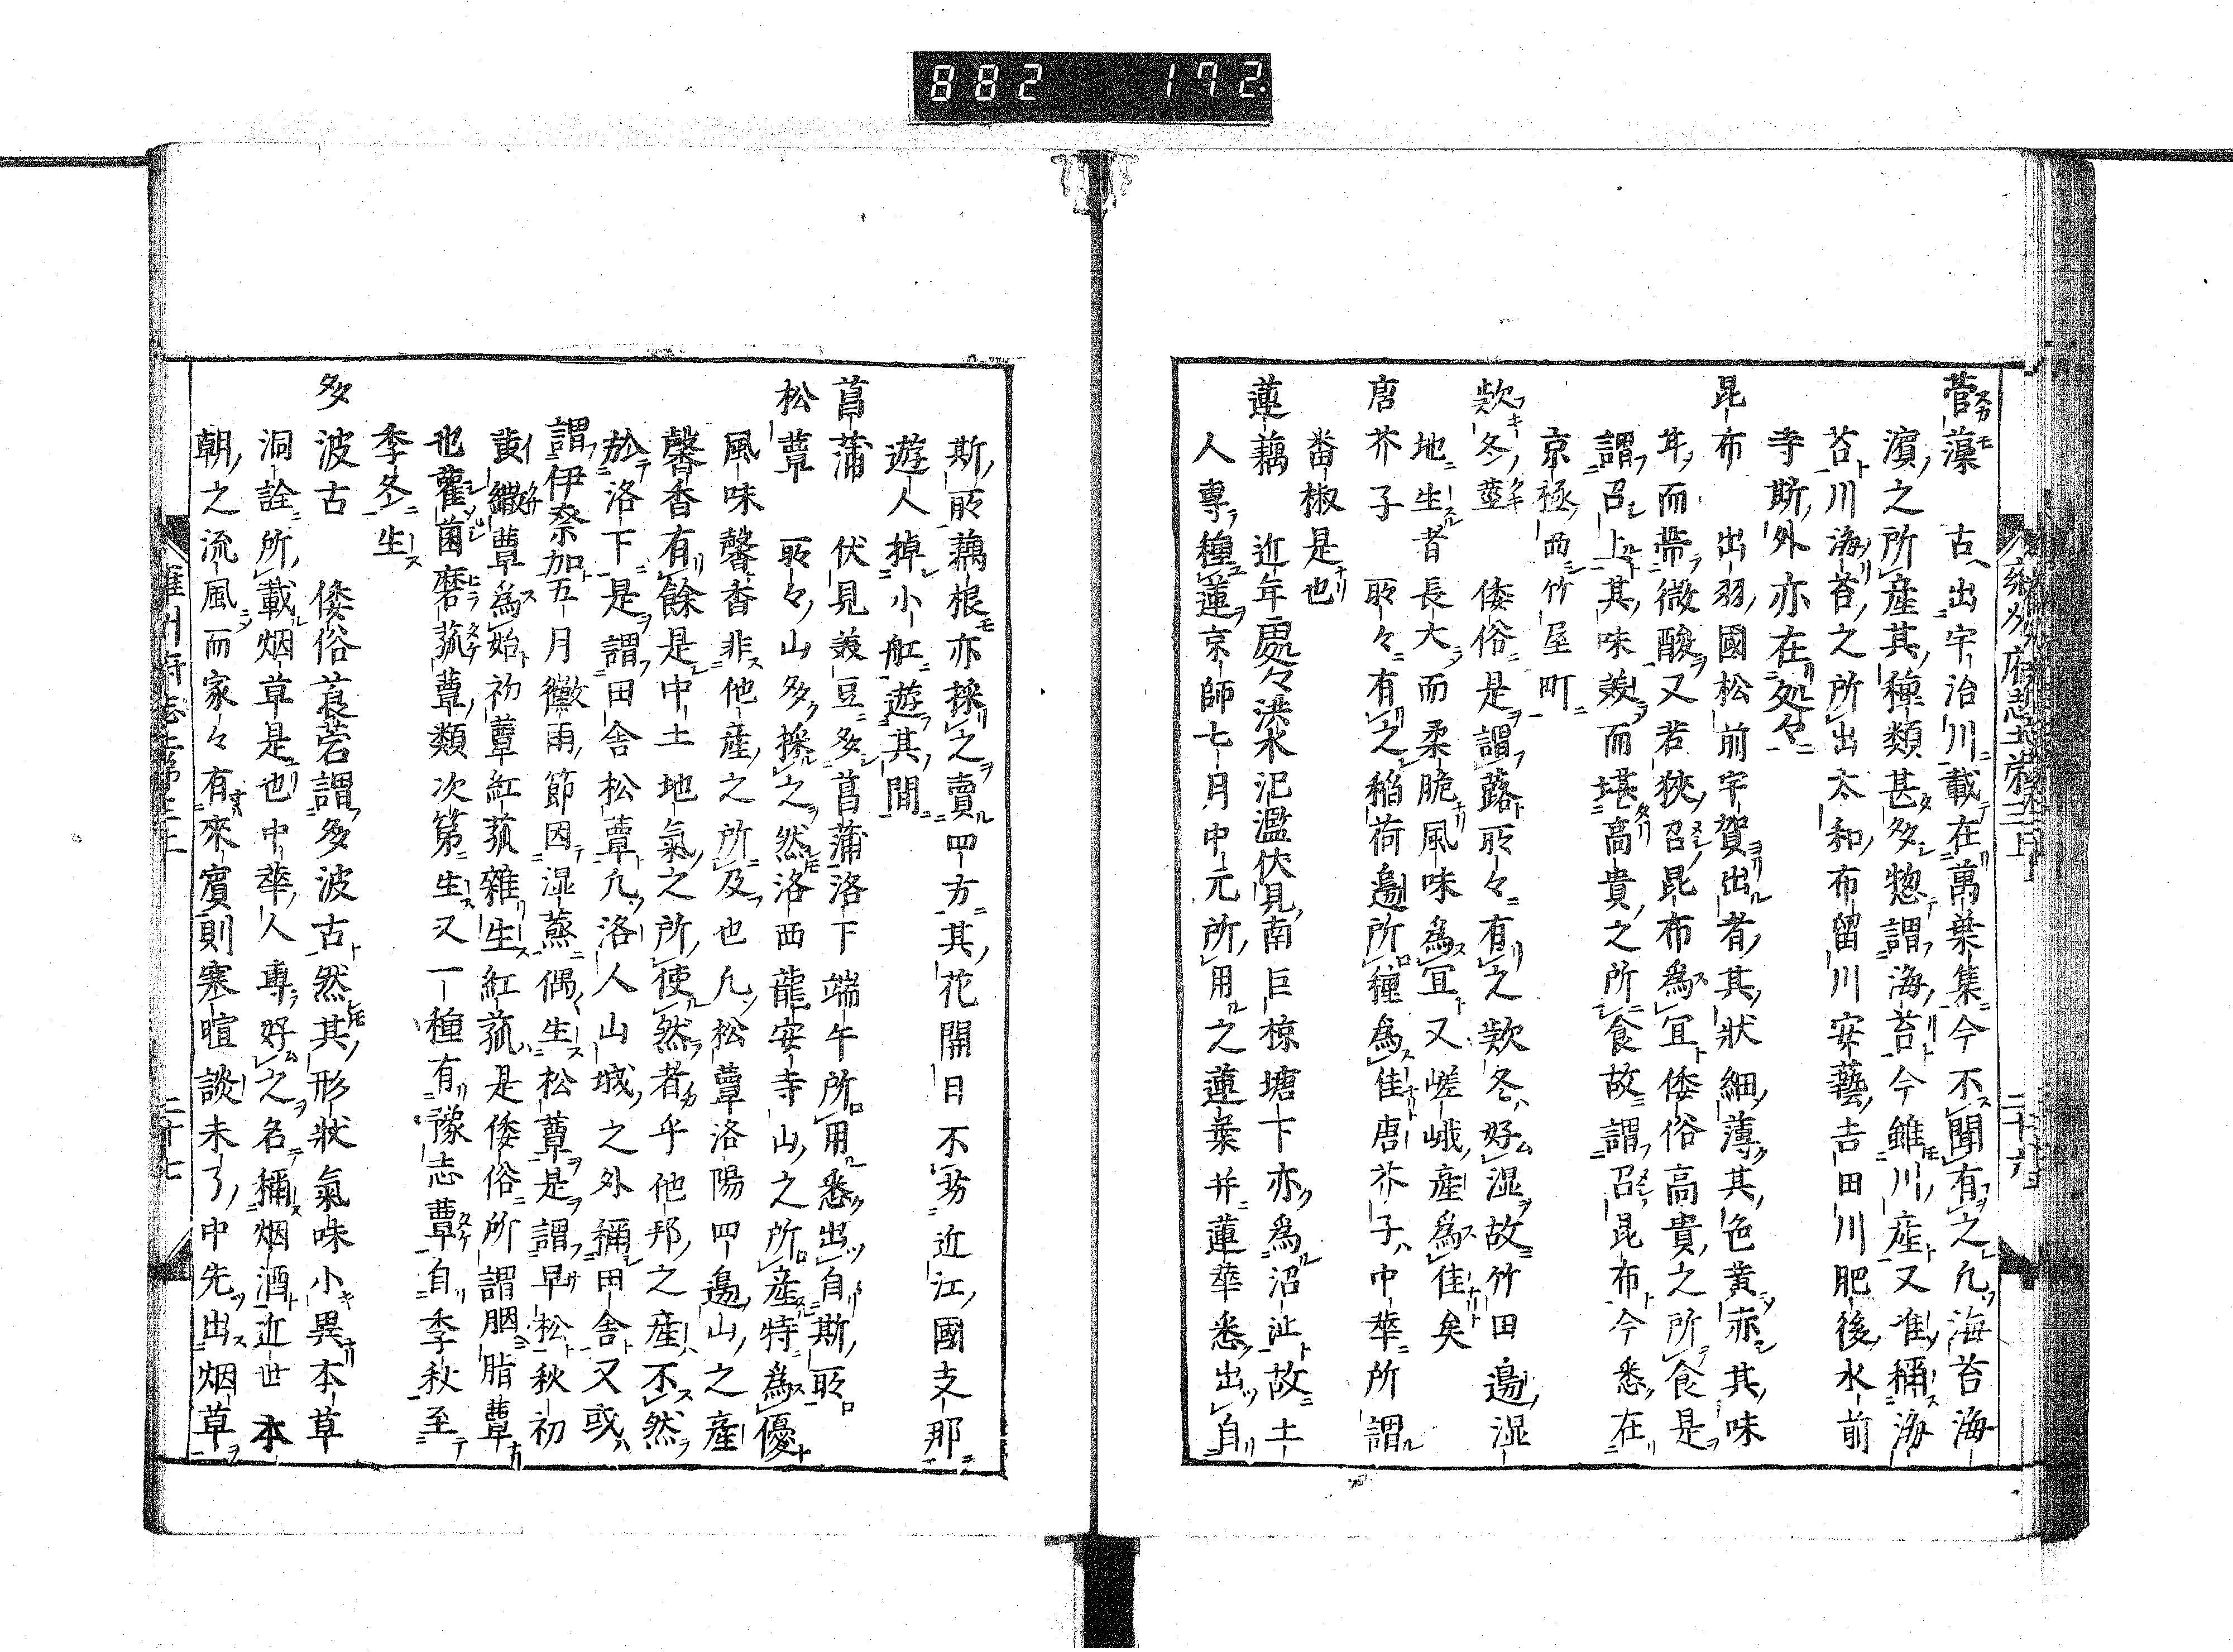 882 172
菅藻 古出宇治川載在萬葉集今不聞有之凡海苔海
濵之所産其種類甚多惣謂海苔今雖川産又准稱海
苔川海苔之所出太和布留川安藝吉田川肥後水前
寺斯外亦在処々
昆布 出羽國松前宇賀出者其狀細薄其色黄亦其味
苷而帶微酸又若狹召昆布為宜倭俗高貴之所食是
謂召上其味羙而堪高貴之所食故謂召昆布今悉在
京極西竹屋町
欵冬莖 倭俗是謂蕗所々有之欵冬好湿故竹田邉湿
地生者長大而柔脆風味為宜又嵯峨産為佳矣
唐芥子 所々有之稲荷邉所種為佳唐芥子中華所謂
畨椒是也
蓮藕 近年處々洪水汜濫伏見南巨椋塘下亦為沼沚故土
人專種蓮京師七月中元所用之蓮葉并蓮華悉出自
雍州府志 二十六
斯所藕根亦採之賣四方其花開日不劣近江國支那
遊人掉小舡遊其間
菖蒲 伏見羙豆多菖蒲洛下端午所用悉出自斯所
松蕈 所々山多採之然洛西龍安寺山之所産特為優
風味馨香非他産之所及也凡松蕈洛陽四邉山之産
馨香有餘是中土地氣之所使然者乎他邦之産不然
於洛下是謂田舎松蕈凡洛人山城之外稱田舎又或
謂伊奈加五月黴雨節因湿蒸偶生松蕈是謂早松秋初
黄纈蕈為始初蕈紅菰雜生紅菰是倭俗所謂胭脂蕈
也雚菌磨菰蕈類次第生又一種有豫志蕈自季秋至
季冬生
多波古 倭俗莨菪謂多波古然其形狀氣味小異本草
洞詮所載烟草是也中華人專好之名稱烟酒近世本
朝之流風而家々有來賓則寒暄談未了中先出烟草
雍州府志 二十七